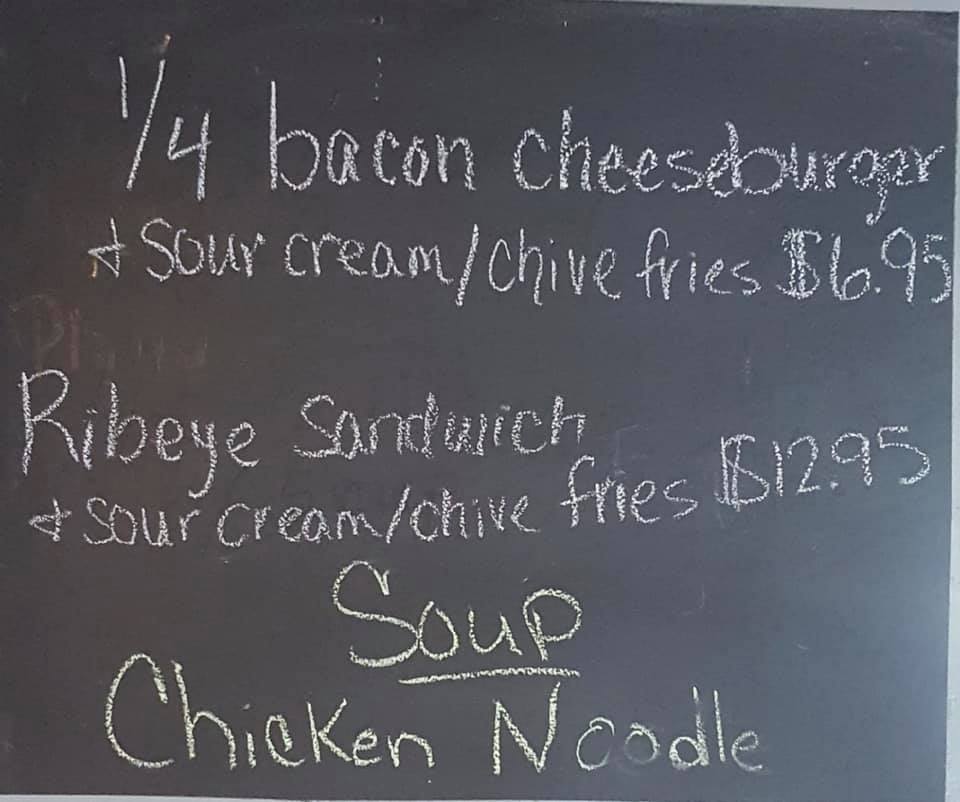 1/4 bacon cheeseburger
& Sour cream/chive fries $6.95
Ribeye Sandwich
& sour cream/chive fries $12.95
Soup
Chicken Noodle